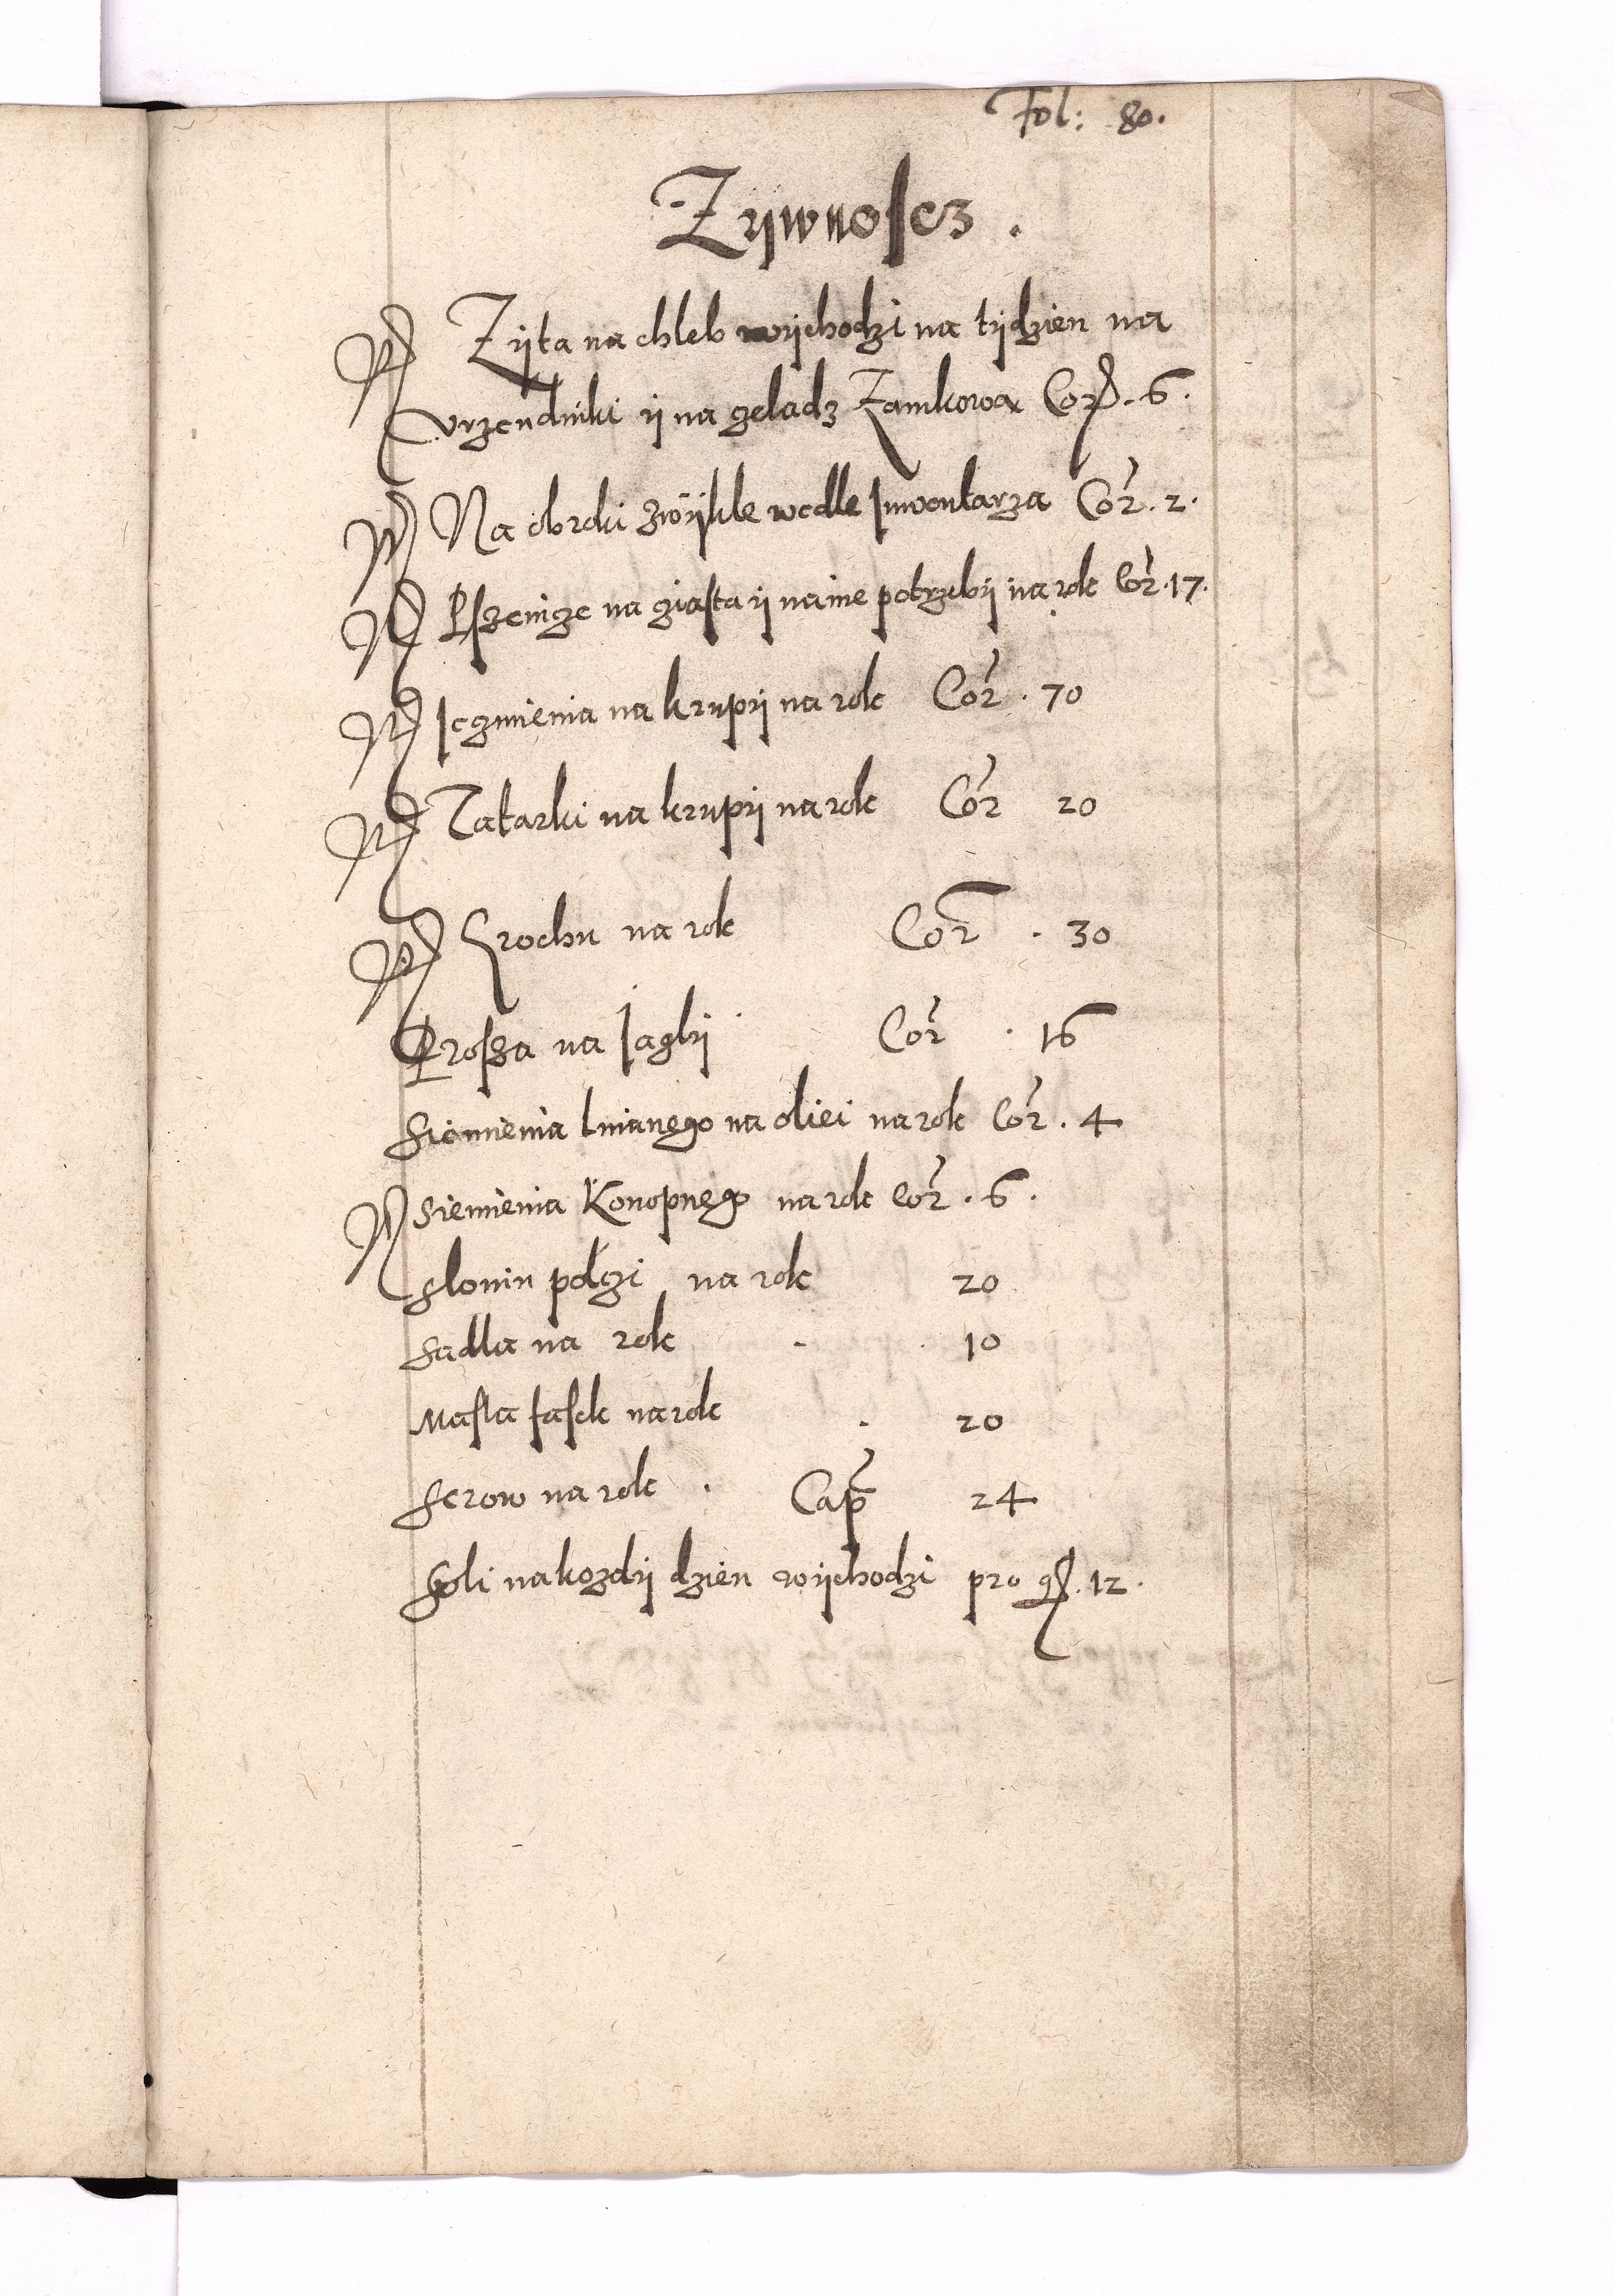 Fol: 80.
Zÿwnoscz.
Zÿta na chleb wÿchodzi na tÿdzien na
vrzendniki ÿ na zeladz Zamkowa Cor. 6.
Na obroki zwÿkle wedle Inwentarza Cor. 2.
Pszenize na ziasta ÿ na ine potrzebÿ na rok Cor. 17.
Jęzmienia na krupÿ na rok Cor. 70
Tatarki na krupÿ na rok Cor 20
Grochu na rok Cor. 30
Prossa na Jaglÿ Cor. 16
Siemienia lnianego na oliei na rok Cor. 4
Siemienia Konopnego na rok Cor. 6.
Slonin polczi na rok 20
Sadla na rok 10
Masla fasek na rok 20
Serow na rok. Cap 24
Soli na kozdÿ dzien wÿchodzi pro 12.